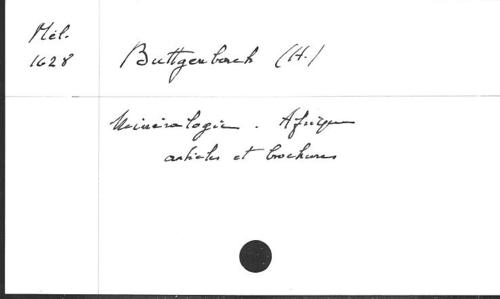 Mél.
1628
Buttgenbach (H.)
Minéralogie. Afrique
articles et brochures